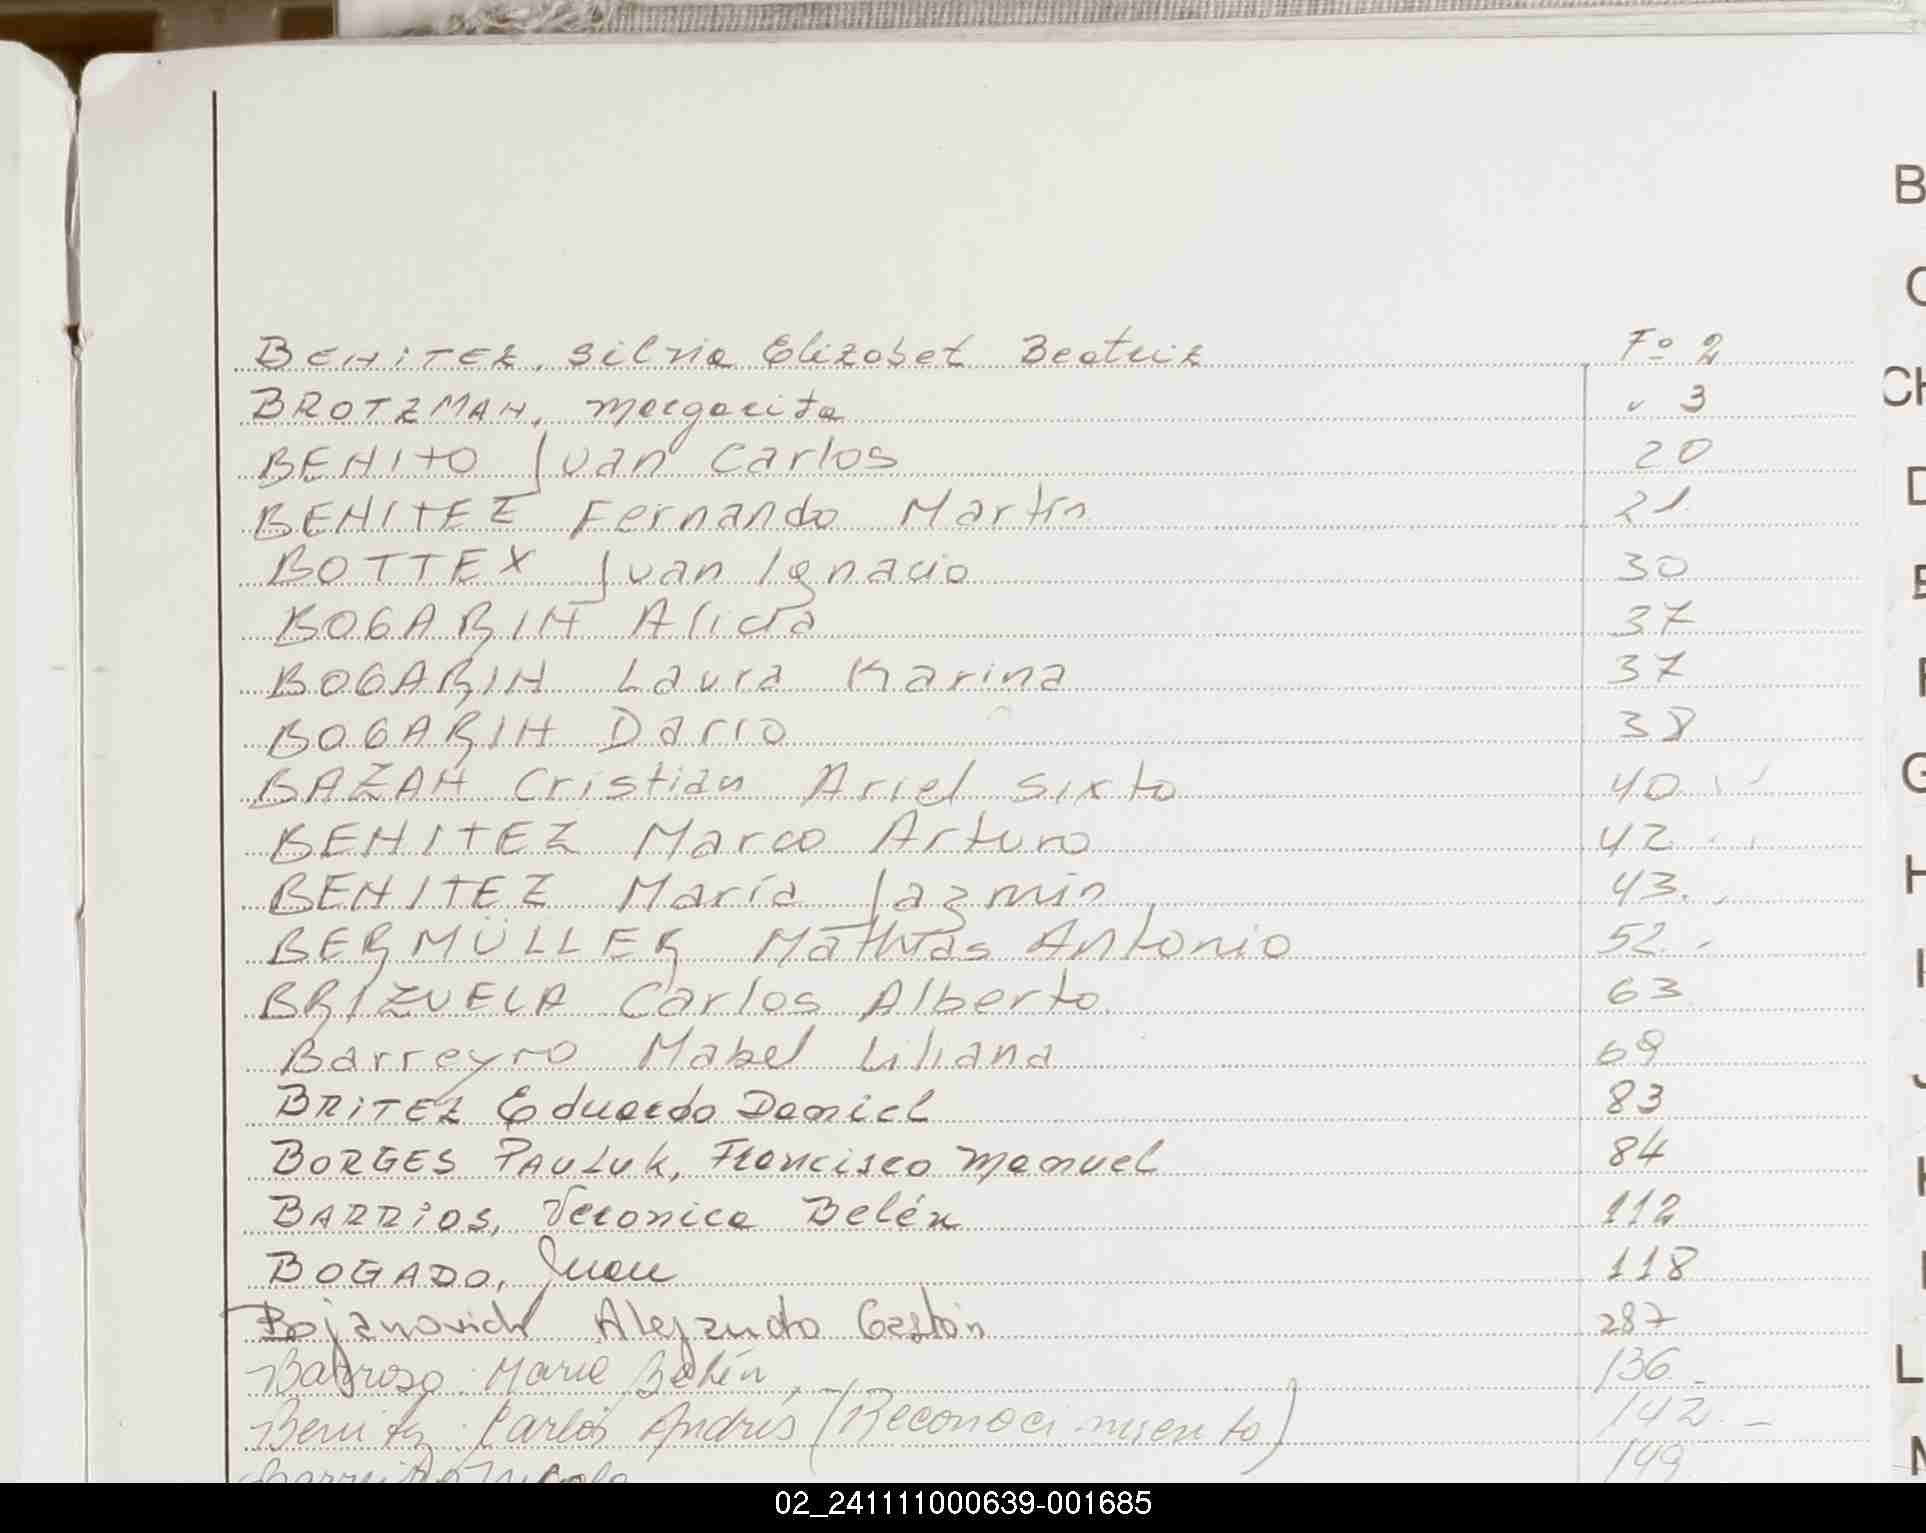 BENITEZ, Silvia Elizabet Beatriz Fº 2
BROTZMAN, Margarita " 3
BENITO Juan Carlos 20
BENITEZ Fernando Martín 21
BOTTEX Juan Ignacio 30
BOGARIN Alicia 37
BOGARIN Laura Karina 37
BOGARIN Darío 38
BAZAN Cristian Ariel Sixto 40
BENITEZ Marco Arturo 42
BENITEZ María Jazmín 43.
BERMÜLLER Mathías Antonio 52.-
BRIZUELA Carlos Alberto. 63
Barreyro Mabel Liliana 69
BRITEZ Eduardo Daniel 83
BORGES PAULUK, Francisco Manuel 84
BARRIOS, Veronica Belén 112
BOGADO, Juan 118
Bojanovich Alejandro Gastón 287
Barroso Marie Belén 136.-
Benitez Carlos Andrés (Reconocimiento) 142.-
149
B
C
CH
D
E
F
G
H
I
J
K
L
M
02_241111000639-001685